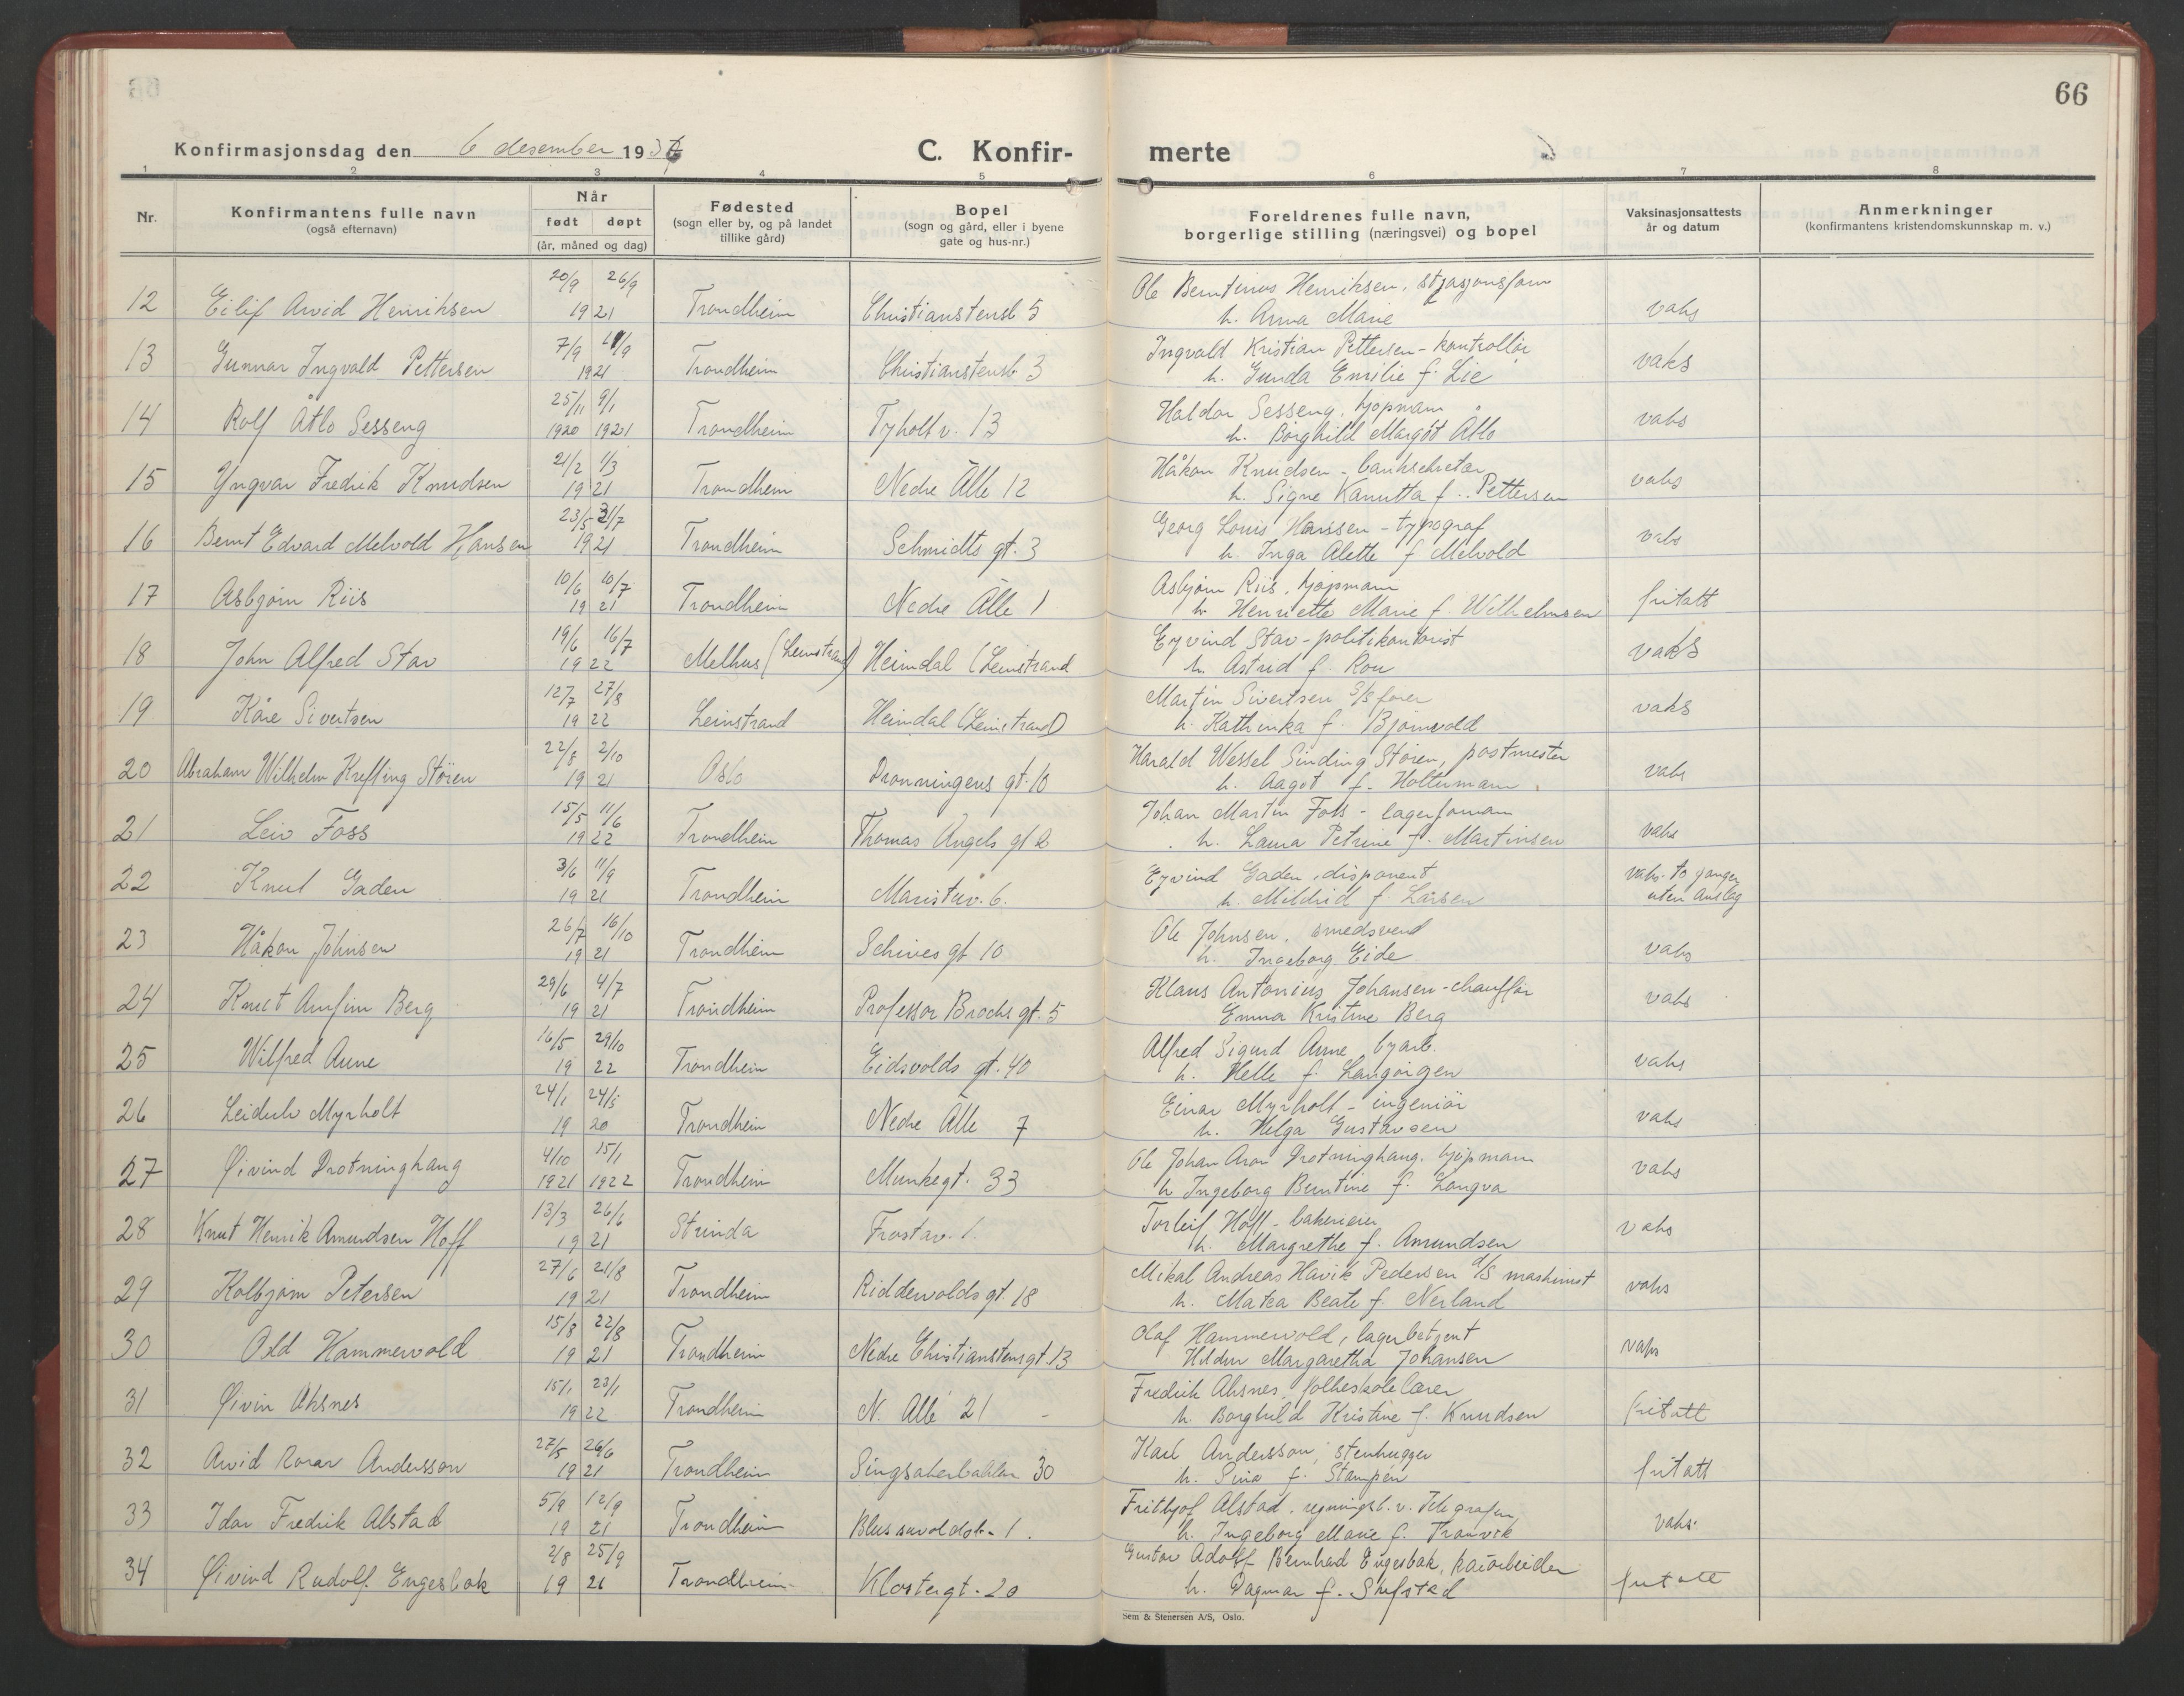 66
Konfirmasjonsdag den 6 desember 1936
C. Konfirmerte
1 2 3 4 5 6 7 8
Nr.
Konfirmantens fulle navn
(også efternavn)
Når
født døpt
(år, måned og dag)
Fødested
(sogn eller by, og på landet
tillike gård)
Bopel
(sogn og gård, eller i byene
gate og hus-nr.)
Foreldrenes fulle navn,
borgerlige stilling (næringsvei) og bopel
Vaksinasjonsattests
år og datum
Anmerkninger
(konfirmantens kristendomskunnskap m. v.)
20/9 26/9 Ole Berntinus Henriksen,
12 Eilif Arvid Henriksen 19 21 Trondheim Christianstensb 5 h. Anna Marie vaks
7/9 11/9 Ingvald Kristian Pettersen - kontrollør
13 Gunnar Ingvald Pettersen 1921 Trondheim Christianstensb 3 h. Gunda Emilie f. Lie vaks
25/11 9/1 Haldor Sesseng, kjøpmann
14 Rolf Åtlo Sesseng 1920 1921 Trondheim Tyholtv. 13 h. Borghild Margot Åtlo vaks
21/2 1/3 Håkon Knudsen - banksekretær
15 Yngvar Fredrik Knudsen 19 21 Trondheim Nedre Alle 12 h. Signe Kanutta f. Pettersen vaks
23/5 31/7 Georg Louis Hanssen - typograf
16 Bernt Edvard Melvold Hansen 19 21 Trondheim Schmidts gt. 3 h. Inga Alette f Melvold vaks
10/6 10/7 Asbjørn Riis, kjøpmann
17 Asbjørn Riis 19 21 Trondheim Nedre Alle 1 h. Henriette Marie f. Wilhelmsen fritatt
19/6 16/7 Eyvind Stav - politikontorist
18 John Alfred Stav 19 22 Melhus (Leinstrand) Heimdal (Leinstrand h. Astrid f. Rou vaks
12/7 27/8 Martin Sivertsen S/S fører
19 Kåre Sivertsen 19 22 Leinstrand Heimdal (Leinstrand) h. Kathinka f. Bjørnvold vaks
22/8 2/10 Harald Wessel Sinding Støren, postmester
20 Abraham Wilhelm Krefting Støren 19 21 Oslo Dronningens gt. 10 h. Aagot f. Holtermann vaks
15/5 11/6 Johan Martin Foss - lagerformann
21 Leiv Foss 19 22 Trondheim Thomas Angels gt 2 h. Laura Petrine f. Martinsen vaks
3/6 11/9 Eyvind Gaden, disponent vaks. to ganger
22 Knut Gaden 19 21 Trondheim Maristuv. 6. h. Mildrid f. Larsen uten anslag
26/7 16/10 Ole Johnsen, smedsvend
23 Håkon Johnsen 19 21 Trondheim Schives gt 10 h. Ingeborg Eide vaks
29/6 4/7 Klaus Antonius Johansen - chauffør
24 Knut Arnfinn Berg 19 21 Trondheim Professor Brochs gt. 5 Emma Kristine Berg vaks
16/5 29/10 Alfred Sigurd Aune, byarb.
25 Wilfred Aune 19 22 Trondheim Eidsvolds gt. 40 h. Helle f. Langørgen vaks
24/1 24/5 Einar Myrholt - ingeniør
26 Leidulv Myrholt 19 20 Trondheim Nedre Alle 7 h. Helga Gustavsen vaks
4/10 15/1 Ole Johan Aron Drotninghaug, kjøpmann
27 Øivind Drotninghaug 1921 1922 Trondheim Munkegt. 33 h Ingeborg Berntine f. Langva vaks
13/3 26/6 Torleif Hoff - bakerieier
28 Knut Henrik Amundsen Hoff 19 21 Strinda Frostav. 1. h. Margrethe f. Amundsen vaks
27/6 21/8 Mikal Andreas Havik Pedersen d/S maskinist
29 Kolbjørn Petersen 19 21 Trondheim Riddervolds gt. 18 h. Matea Beate f. Nerland vaks
15/8 22/8 Olaf Hammervold, lagerbetjent
30 Odd Hammervold 19 21 Trondheim Nedre Christianstensgt. 13 Huldur Margaretha Johansen vaks
15/1 23/1 Fredrik Aksnes, folkeskolelærer
31 Øivin Aksnes 19 22 Trondheim N. Allé 21 h. Borghild Kristine f. Knudsen fritatt
27/5 26/6 Karl Andersson, stenhugger
32 Arvid Roear Andersson 19 21 Trondheim Singsakerbakken 30 h. Sina f. Stampen fritatt
5/9 12/9 Fritthjof Alstad, regningsb. v. Telegrafen
33 Idar Fredrik Alstad 19 21 Trondheim Blussuvoldsb. 1. h. Ingeborg Marie f. Tranvik vaks.
2/8 25/9 Gustav Adolf Bernhard Engesbak, kaiarbeider
34 Øivind Rudolf Engesbak 19 21 Trondheim Klostergt. 20 h. Dagmar f. fritatt
Sem & Stenersen A/S, Oslo.